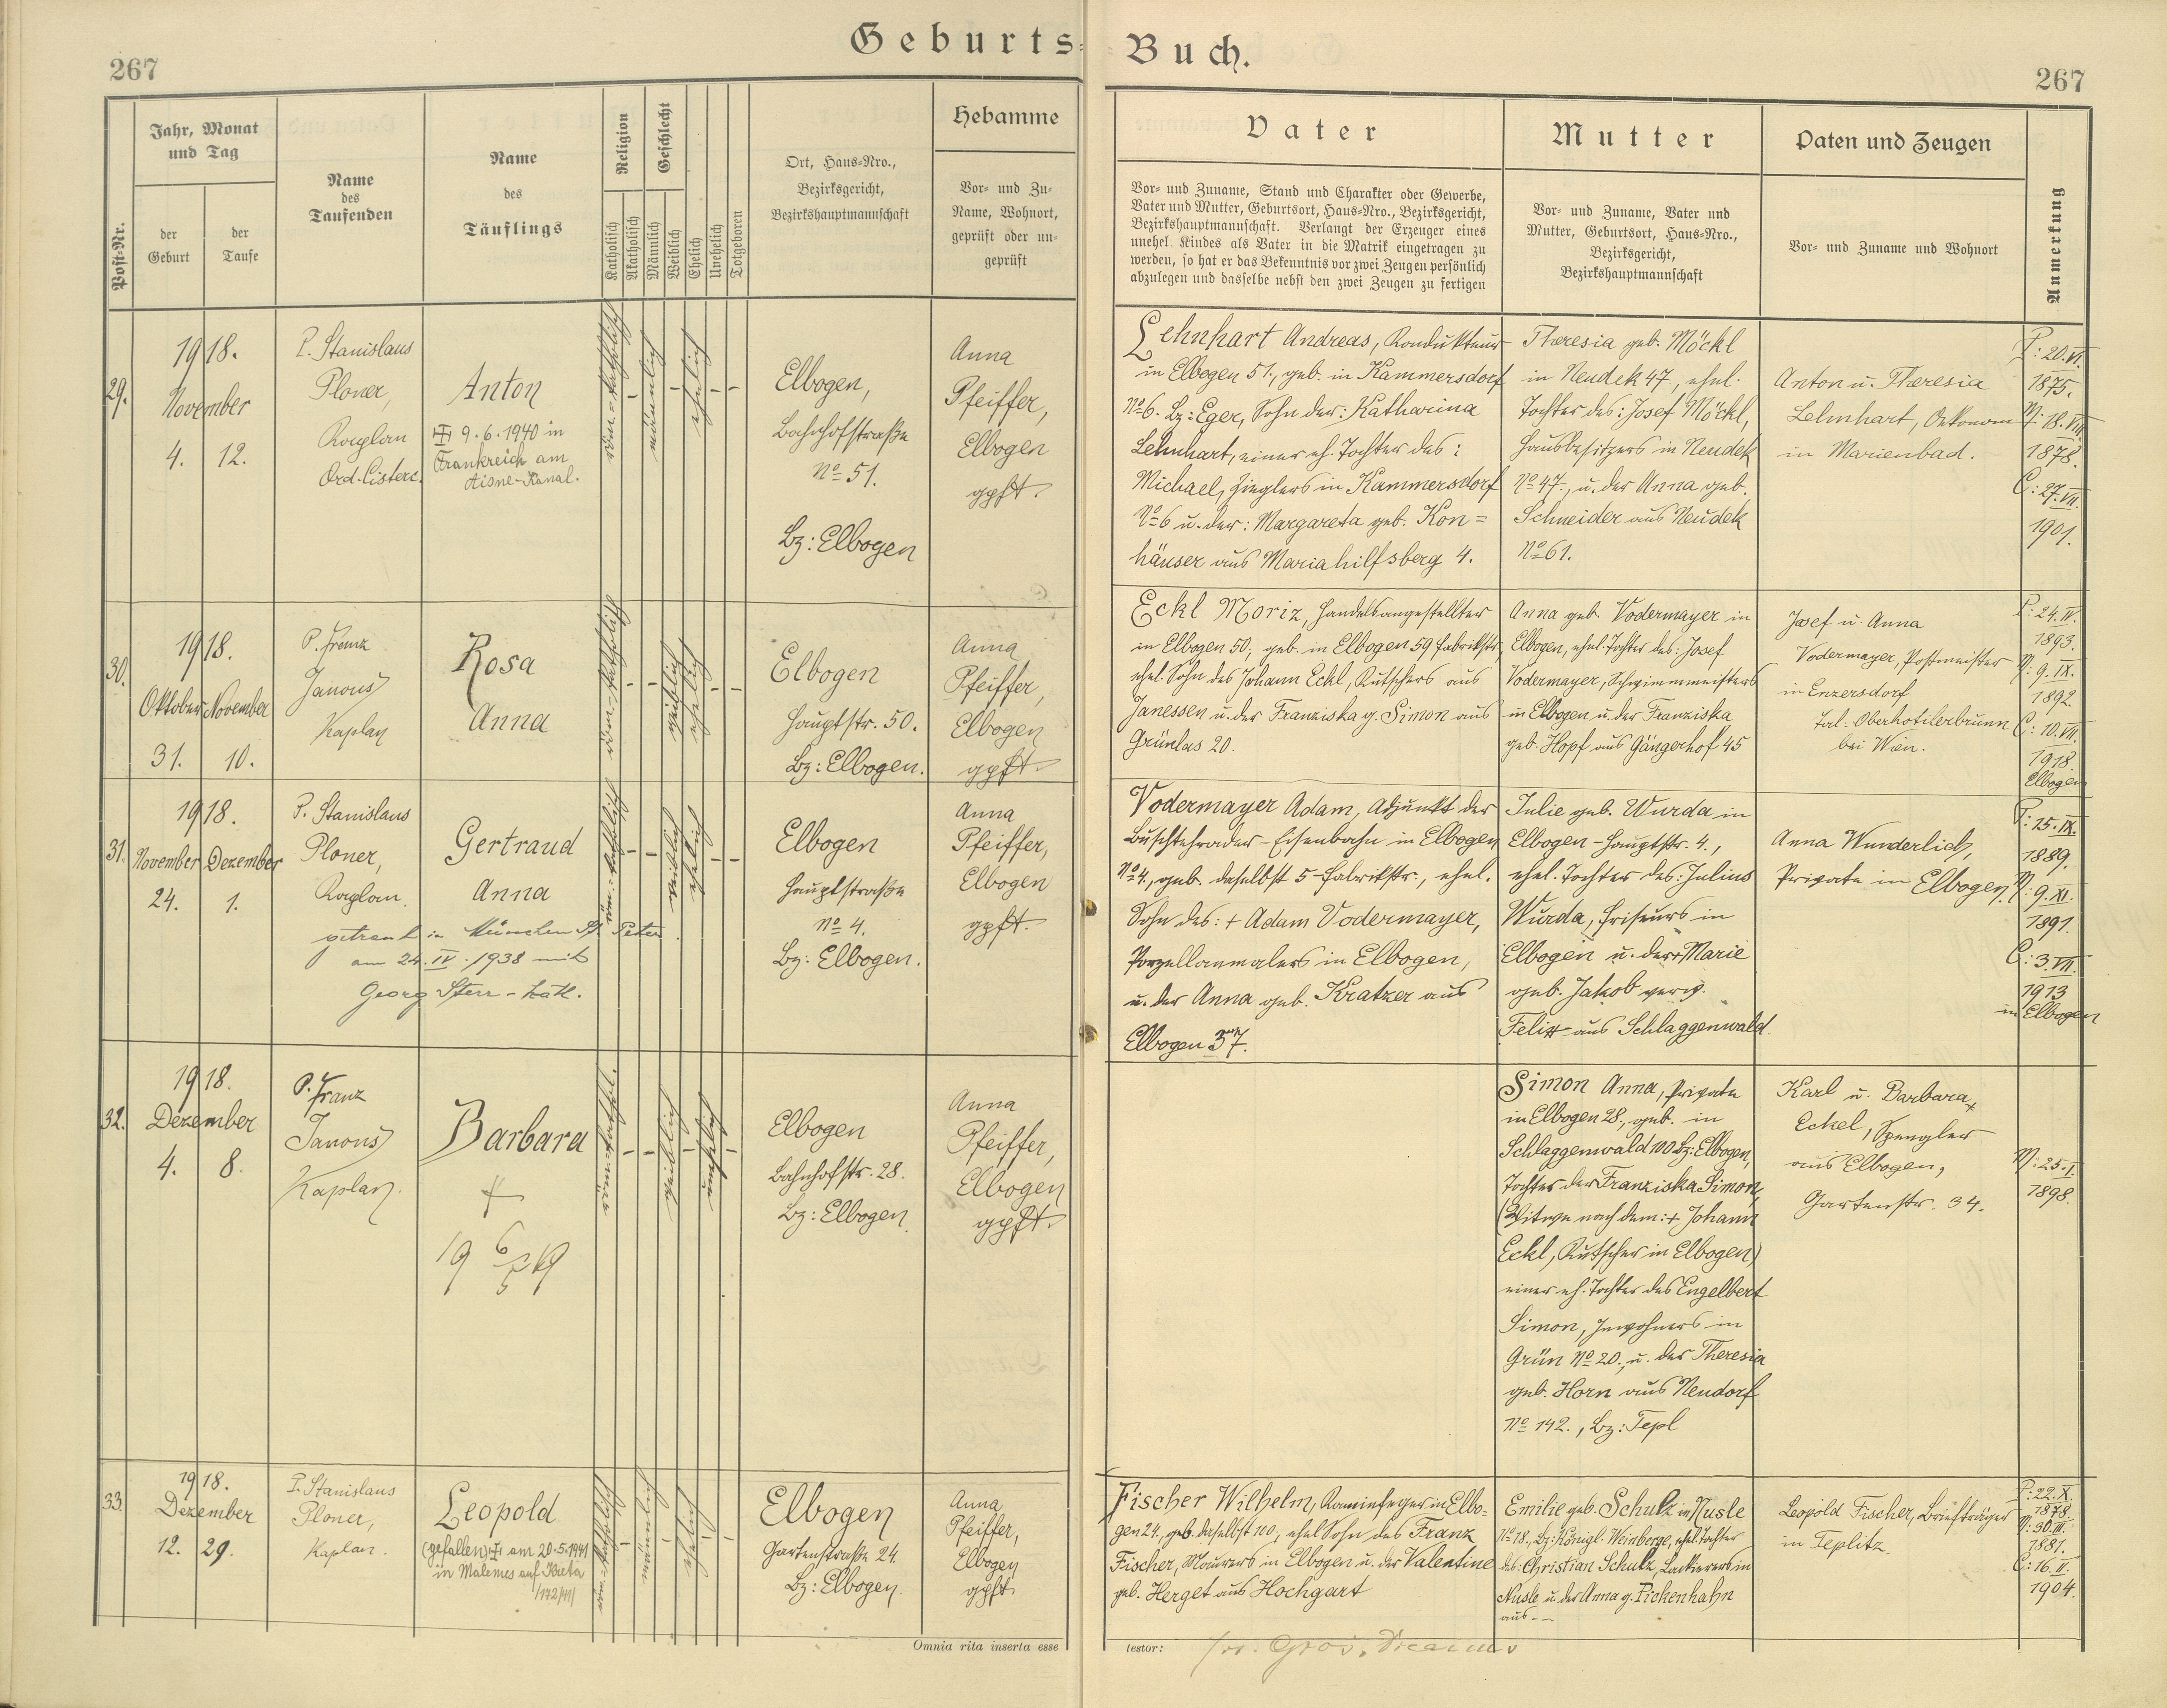 Geburts-Buch.
267
267
Post-Nr.
Jahr, Monat
und Tag
der
Geburt
der
Taufe
Name
des
Taufenden
Name
des
Täuflings
Religion
Katholisch
Akatholisch
Geschlecht
Männlich
Weiblich
Ehelich
Unehelich
Totgeboren
Ort, Haus-Nro.,
Bezirksgericht,
Bezirkshauptmannschaft
Hebamme
Vor- und Zu-
Name, Wohnort,
geprüft oder un-
geprüft
Vater
Vor- und Zuname, Stand und Charakter oder Gewerbe,
Vater und Mutter, Geburtsort, Haus-Nro., Bezirksgericht,
Bezirkshauptmannschaft. Verlangt der Erzeuger eines
unehel. Kindes als Vater in die Matrik eingetragen zu
werden, so hat er das Bekenntnis vor zwei Zeugen persönlich
abzulegen und dasselbe nebst den zwei Zeugen zu fertigen
Mutter
Vor- und Zuname, Vater und
Mutter, Geburtsort, Haus-Nro.,
Bezirksgericht,
Bezirkshauptmannschaft
Paten und Zeugen
Vor- und Zuname und Wohnort
Anmerkung
29.
1918.
November
4. 12.
P. Stanislaus
Ploner,
Kaplan
Ord. Cisterc.
Anton
9.6.1940 in
Frankreich am
Aisne-Kanal.
röm-katholisch
-
männlich
-
ehelich
-
-
Elbogen,
Bahnhofstraße
No 51.
Bz: Elbogen
Anna
Pfeiffer,
Elbogen
gpft.
Lehnhart Andreas, Kondukteur
in Elbogen 51., geb. in Kammersdorf
No 6. Bz: Eger, Sohn der: Katharina
Lehnhart, einer eh. Tochter des:
Michael, Zieglers in Kammersdorf
No 6 u. der: Margareta geb. Kon=
häuser aus Mariahilfsberg 4.
Theresia geb. Möckl
in Neudek 47, ehel.
Tochter des: Josef Möckl,
Hausbesitzers in Neudek
No 47., u. der Anna geb.
Schneider aus Neudek
No 61.
Anton u. Theresia
Lehnhart, Oekonom
in Marienbad.
P: 20. VI.
1875.
M: 18. VIII
1878.
C: 27. VII.
1901.
30.
1918.
Oktober November
31. 10.
P. Franz
Janous
Kaplan
Rosa
Anna
röm-katholisch
-
-
weiblich
ehelich
-
-
Elbogen
Hauptstr. 50.
Bz: Elbogen.
Anna
Pfeiffer,
Elbogen
gpft.
Eckl Moriz, Handelsangestellter
in Elbogen 50; geb. in Elbogen 59 Fabrikstr,
ehel. Sohn des Johann Eckl, Kutschers aus
Janessen u. der Franziska g. Simon aus
Grünlas 20.
Anna geb. Vodermayer in
Elbogen, ehel. Tochter des: Josef
Vodermayer, Schwimmmeisters
in Elbogen u. der Franziska
geb. Hopf aus Gängerhof 45
Josef u. Anna
Vodermayer, Postmeister
in Enzersdorf
Tal: Oberhotilerbrunn
bei Wien.
P: 24. IV.
1893.
M: 9. IX.
1892.
C: 10. VII.
1918.
Elbogen
31.
1918.
November Dezember
24. 1.
P. Stanislaus
Ploner,
Kaplan.
Gertraud
Anna
getraut in München St. Peter
am 24. IV. 1938 mit
Georg Sterr - kath.
röm-katholisch
-
-
weiblich
ehelich
-
-
Elbogen
Hauptstraße
No 4.
Bz: Elbogen.
Anna
Pfeiffer,
Elbogen
gpft.
Vodermayer Adam, Adjunkt der
Buschtehrader-Eisenbahn in Elbogen
No 4., geb. daselbst 5-Fabrikstr., ehel.
Sohn des: + Adam Vodermayer,
Porzellanmalers in Elbogen,
u. der Anna geb. Kratzer aus
Elbogen 37.
Julie geb. Wurda in
Elbogen-Hauptstr. 4.,
ehel. Tochter des: Julius
Wurda, Friseurs in
Elbogen u. der + Marie
geb. Jakob verw.
Felix aus Schlaggenwald.
Anna Wunderlich,
Private in Elbogen.
P: 15. IX.
1889.
M: 9. XI.
1891.
C: 3. VII.
1913
in Elbogen
32.
1918.
Dezember
4. 8.
P. Franz
Janous
Kaplan.
Barbara
+
19 6/5 19
röm-kathol.
-
-
weiblich
-
unehelich
-
Elbogen
Bahnhofstr. 28.
Bz: Elbogen.
Anna
Pfeiffer,
Elbogen
gpft.
Simon Anna, Private
in Elbogen 28., geb. in
Schlaggenwald 100 Bz: Elbogen,
Tochter der Franziska Simon,
(Witwe nach dem: + Johann
Eckl, Kutscher in Elbogen)
einer eh. Tochter des Engelbert
Simon, Inwohners in
Grün No 20., u. der Theresia
geb. Horn aus Neudorf
No 142., Bz: Tepl
Karl u. Barbara
Eckel, Spengler
aus Elbogen,
Gartenstr. 34.
M: 25. I.
1898.
33.
1918.
Dezember
12. 29.
P. Stanislaus
Ploner,
Kaplan.
Leopold
(gefallen) am 20.5.1941
in Malemes auf Kreta
/142/41/
röm-katholisch
-
männlich
-
ehelich
-
-
Elbogen
Gartenstraße 24.
Bz: Elbogen.
Anna
Pfeiffer,
Elbogen
gpft.
Fischer Wilhelm, Kaminfeger in Elbo-
gen 24., geb. daselbst 100, ehel. Sohn des Franz
Fischer, Maurers in Elbogen u. der Valentine
geb. Herget aus Hochgart
Emilie geb. Schulz in Nusle
No 18., Bz: Königl. Weinberge, ehel. Tochter
des: Christian Schulz, Lackierers in
Nusle u. der Anna g. Pickenhahn
aus --
Leopold Fischer, Briefträger
in Teplitz
P: 22. X.
1878.
M: 30. III.
1881.
C: 16. II.
1904.
Omnia rita inserta esse testor: